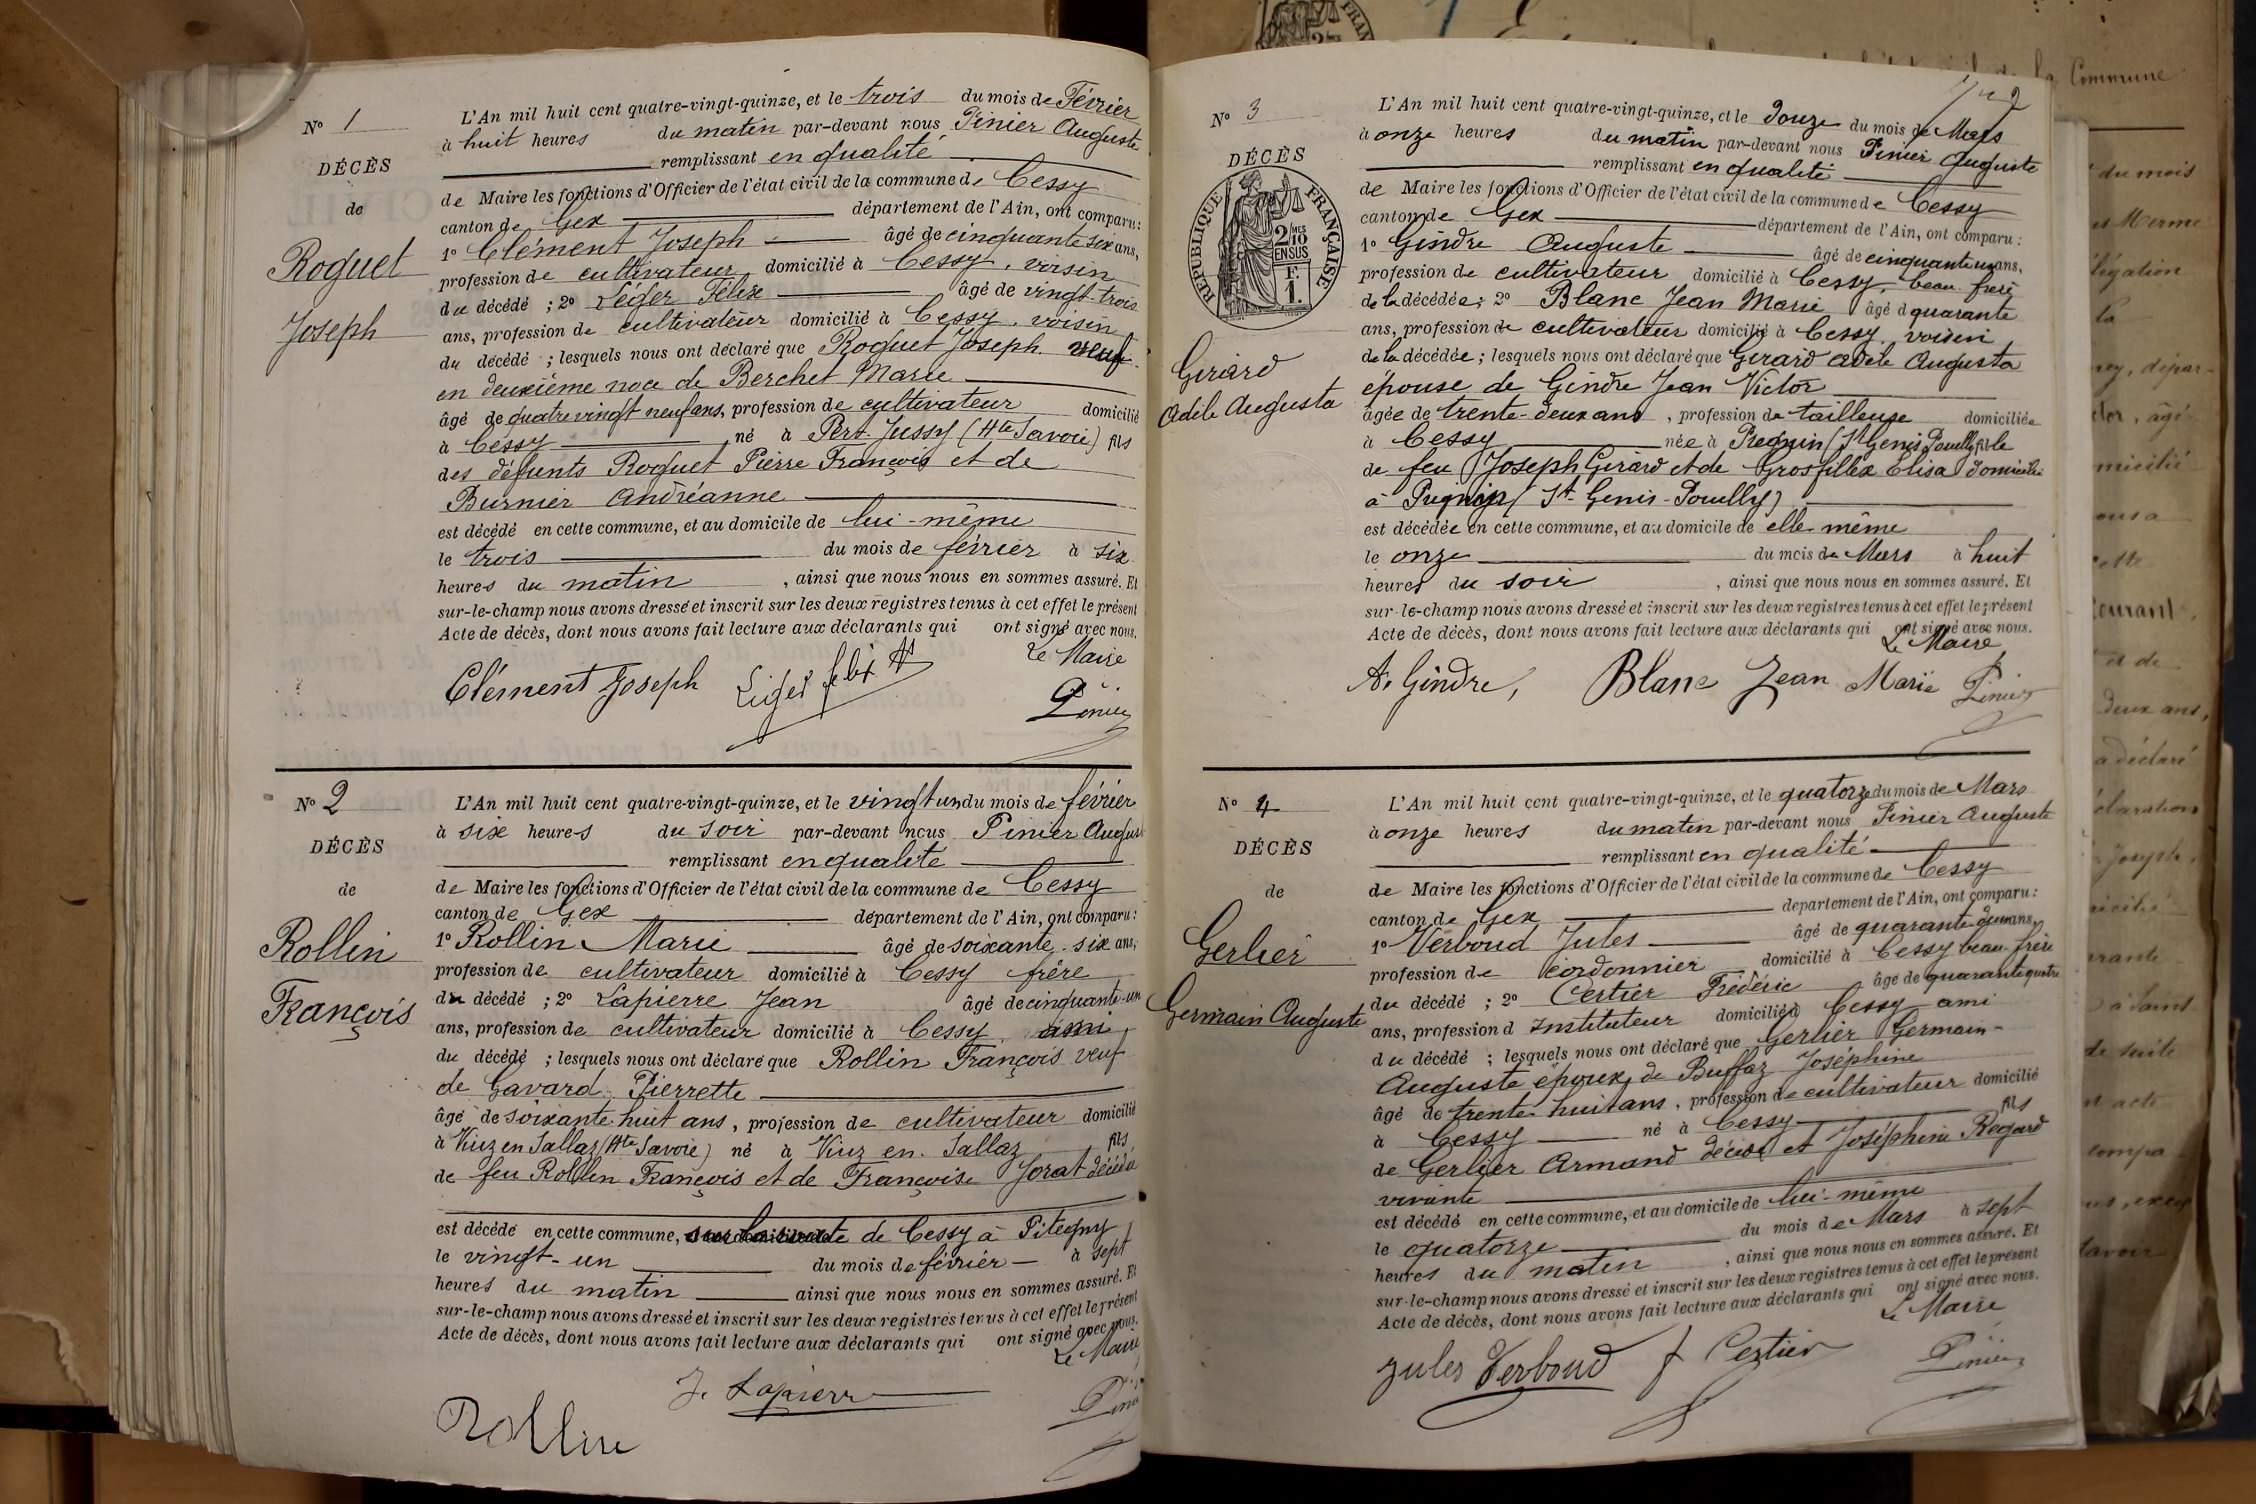 N° 1
DÉCÈS
de
Roguet
Joseph
L'An mil huit cent quatre-vingt-quinze, et le trois du mois de Février
à huit heures du matin par-devant nous Pinier Auguste
remplissant en qualité
de Maire les fonctions d'Officier de l'état civil de la commune de Cessy
canton de Gex département de l'Ain, ont comparu :
1° Clément Joseph âgé de cinquante six ans,
profession de cultivateur domicilié à Cessy, voisin
du décédé ; 2° Léger Félix âgé de vingt-trois
ans, profession de cultivateur domicilié à Cessy, voisin
du décédé ; lesquels nous ont déclaré que Roguet Joseph veuf
en deuxième noce de Berchet Marie
âgé de quatre vingt neuf ans, profession de cultivateur domicilié
à Cessy né à Pers-Jussy (Hte Savoie) fils
des défunts Roguet Pierre François et de
Burnier Andréanne
est décédé en cette commune, et au domicile de lui-même
le trois du mois de février à six
heures du matin, ainsi que nous nous en sommes assuré. Et
sur-le-champ nous avons dressé et inscrit sur les deux registres tenus à cet effet le présent
Acte de décès, dont nous avons fait lecture aux déclarants qui ont signé avec nous.
Le Maire
Clément Joseph Léger félix Pinier
N° 2
DÉCÈS
de
Rollin
François
L'An mil huit cent quatre-vingt-quinze, et le vingt un du mois de février
à six heures du soir par-devant nous Pinier August
remplissant en qualité
de Maire les fonctions d'Officier de l'état civil de la commune de Cessy
canton de Gex département de l'Ain, ont comparu :
1° Rollin Marie âgé de soixante-six ans,
profession de cultivateur domicilié à Cessy frère
du décédé ; 2° Lapierre Jean âgé de cinquante-un
ans, profession de cultivateur domicilié à Cessy ami
du décédé ; lesquels nous ont déclaré que Rollin François veuf
de Gavard Pierrette
âgé de soixante huit ans, profession de cultivateur domicilié
à Viuz en Sallaz (Hte Savoie) né à Viuz en Sallaz fils
de feu Rollin François et de Françoise Jorat décédée
est décédé en cette commune, de Cessy à Pitegny
le vingt-un du mois de février à sept
heures du matin ainsi que nous nous en sommes assuré. Et
sur-le-champ nous avons dressé et inscrit sur les deux registres tenus à cet effet le présent
Acte de décès, dont nous avons fait lecture aux déclarants qui ont signé avec nous.
Le Maire
J. Lapierre
Rollin
N° 3
DÉCÈS
RÉPUBLIQUE FRANÇAISE
2/10 MES
EN SUS
F.
1.
Girard
Adèle Augusta
L'An mil huit cent quatre-vingt-quinze, et le Douze du mois de Mars
à onze heures du matin par-devant nous Pinier Auguste
remplissant en qualité
de Maire les fonctions d'Officier de l'état civil de la commune de Cessy
canton de Gex département de l'Ain, ont comparu :
1° Gindre Auguste âgé de cinquante un ans,
profession de cultivateur domicilié à Cessy, beau-frère
de la décédée ; 2° Blanc Jean Marie âgé d quarante
ans, profession de cultivateur domicilié à Cessy, voisin
de la décédée ; lesquels nous ont déclaré que Girard Adèle Augusta
épouse de Gindre Jean Victor
âgée de trente-deux ans, profession de tailleuse domiciliée
à Cessy née à Pregnin (St Genis Pouilly) fille
de feu Joseph Girard et de Grosfillex Elisa domiciliée
à Pregnin (St-Genis-Pouilly)
est décédée en cette commune, et au domicile de elle même
le onze du mois de Mars à huit
heures du soir, ainsi que nous nous en sommes assuré. Et
sur-le-champ nous avons dressé et inscrit sur les deux registres tenus à cet effet le présent
Acte de décès, dont nous avons fait lecture aux déclarants qui ont signé avec nous.
Le Maire
A. Gindre, Blanc Jean Marie Pinier
N° 4
DÉCÈS
de
Gerlier
Germain Auguste
L'An mil huit cent quatre-vingt-quinze, et le quatorze du mois de Mars
à onze heures du matin par-devant nous Pinier Auguste
remplissant en qualité
de Maire les fonctions d'Officier de l'état civil de la commune de Cessy
canton de Gex département de l'Ain, ont comparu :
1° Verboud Jules âgé de quarante deux ans,
profession de cordonnier domicilié à Cessy beau-frère
du décédé ; 2° Certier Frédéric âgé de quarante quatre
ans, profession d Instituteur domicilié à Cessy ami
du décédé ; lesquels nous ont déclaré que Gerlier Germain-
Auguste époux de Buffaz Joséphine
âgé de trente-huit ans, profession de cultivateur domicilié
à Cessy né à Cessy fils
de Gerlier Armand décédé et Joséphine Regard
vivante
est décédé en cette commune, et au domicile de lui-même
le quatorze du mois de Mars à sept
heures du matin, ainsi que nous nous en sommes assuré. Et
sur-le-champ nous avons dressé et inscrit sur les deux registres tenus à cet effet le présent
Acte de décès, dont nous avons fait lecture aux déclarants qui ont signé avec nous.
Le Maire
Jules Verboud f Certier Pinier
la Commune
du mois
deux ans,
a déclaré